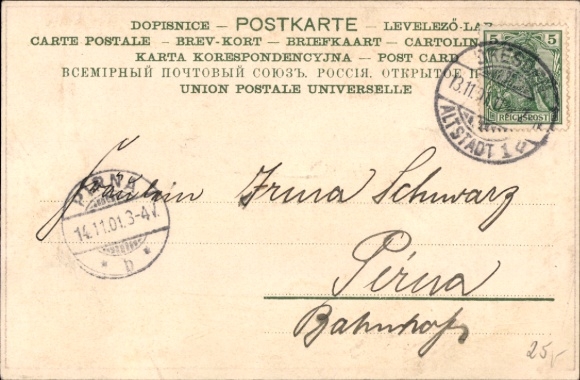 DOPISNICE — POSTKARTE — LEVELEZŐ-LAP
CARTE POSTALE — BREV-KORT — BRIEFKAART — CARTOLIN
KARTA KORESPONDENCYJNA — POST CARD
ВСЕМІРНЫЙ ПОЧТОВЫЙ СОЮЗЪ. РОССІЯ. ОТКРЫТОЕ П
UNION POSTALE UNIVERSELLE
5 5
REICHSPOST
DRESDEN
13.11.01
ALTSTADT 1
PIRNA
14.11.01.3-4N.
b
Fräulein Irma Schwarz
Pirna
Bahnhof
25,-